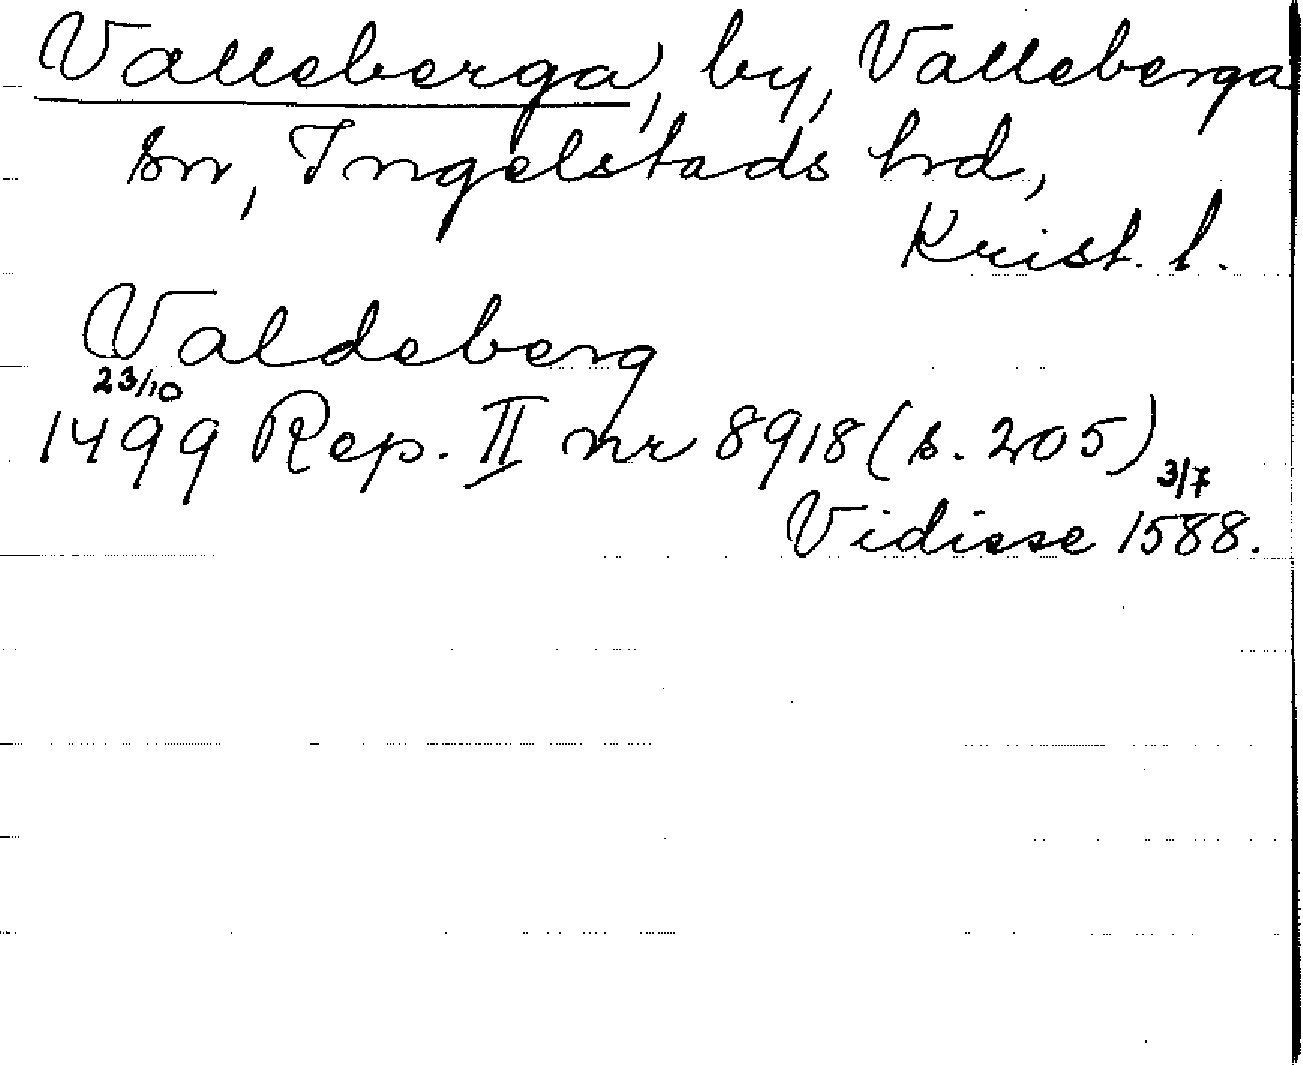 Valleberga, by, Valleberga
sn, Ingelstads hrd,
Krist. l.
Valdeberg
23/10
1499 Rep. II nr 8918 (s. 205)
3/7
Vidisse 1588.